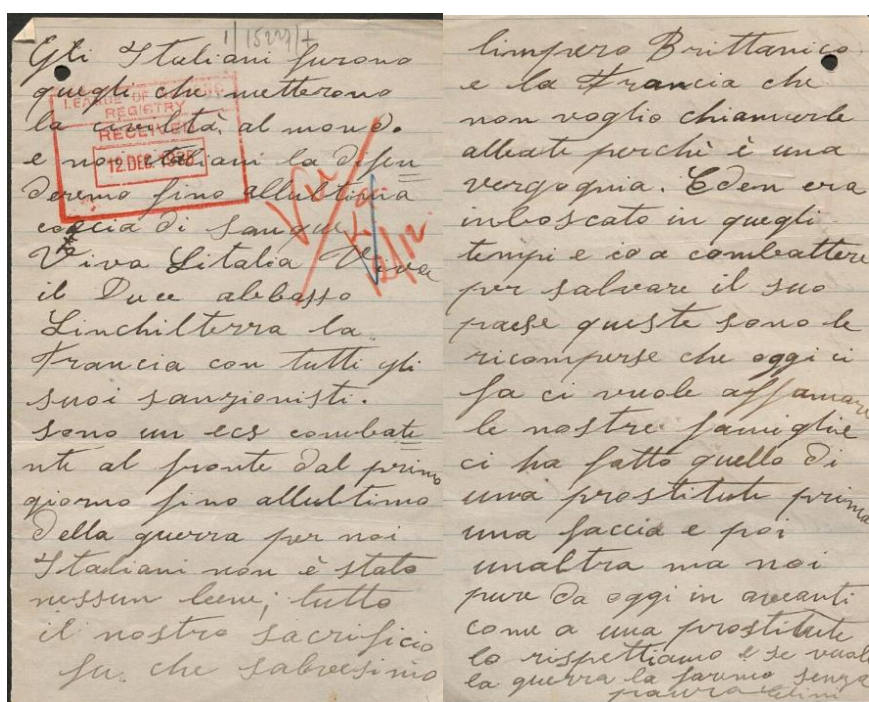 1/15227/+
Gli Italiani furono
quegli che metterono
la civoltà, al mondo.
e noi italiani la difen
deremo fino allultima
coccia di sangue
Viva Litalia Viva
il Duce abbasso
Linchilterra la
Francia con tutti gli
suoi sanzionisti.
sono un ecs combate
nte al fronte dal primo
giorno fino allultimo
della guerra per noi
Italiani non è stato
nessun bene; tutto
il nostro sacrificio
fu. che salvesimo
LEAGUE OF NATIONS
REGISTRY
RECEIVED
12 DEC 1935
12/12
limpero Brittanico
e la Francia che
non voglio chiamerle
alleate perchè è una
vergognia. Eden era
inboscato in quegli
tempi e io a combattere
per salvare il suo
paese queste sono le
ricomperse che oggi ci
fa ci vuole affamare
le nostre famiglie
ci ha fatto quello di
una prostitute prima
una faccia e poi
unaltra ma noi
pure da oggi in avanti
come a una prostitute
lo rispettiamo e se vuole
la guerra la faremo senza
paura